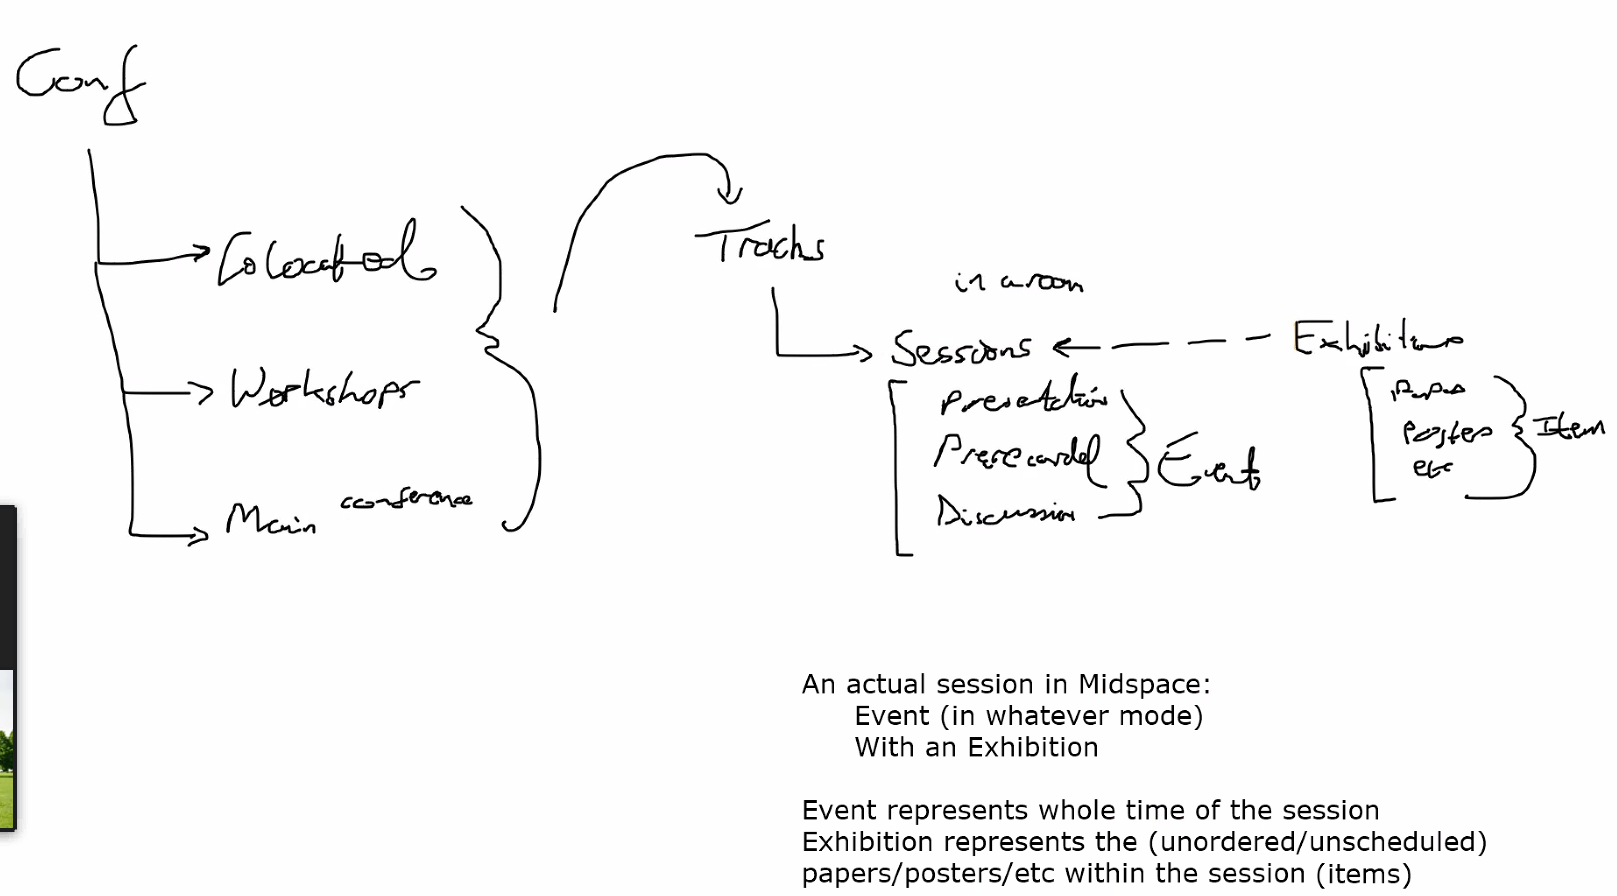 Conf
Colocated
Workshops
Main conference
Tracks
in a room
Sessions
Presentation
Prerecorded
Discussion
Event
Exhibitions
Papers
Posters
etc
Item
An actual session in Midspace:
Event (in whatever mode)
With an Exhibition
Event represents whole time of the session
Exhibition represents the (unordered/unscheduled)
papers/posters/etc within the session (items)